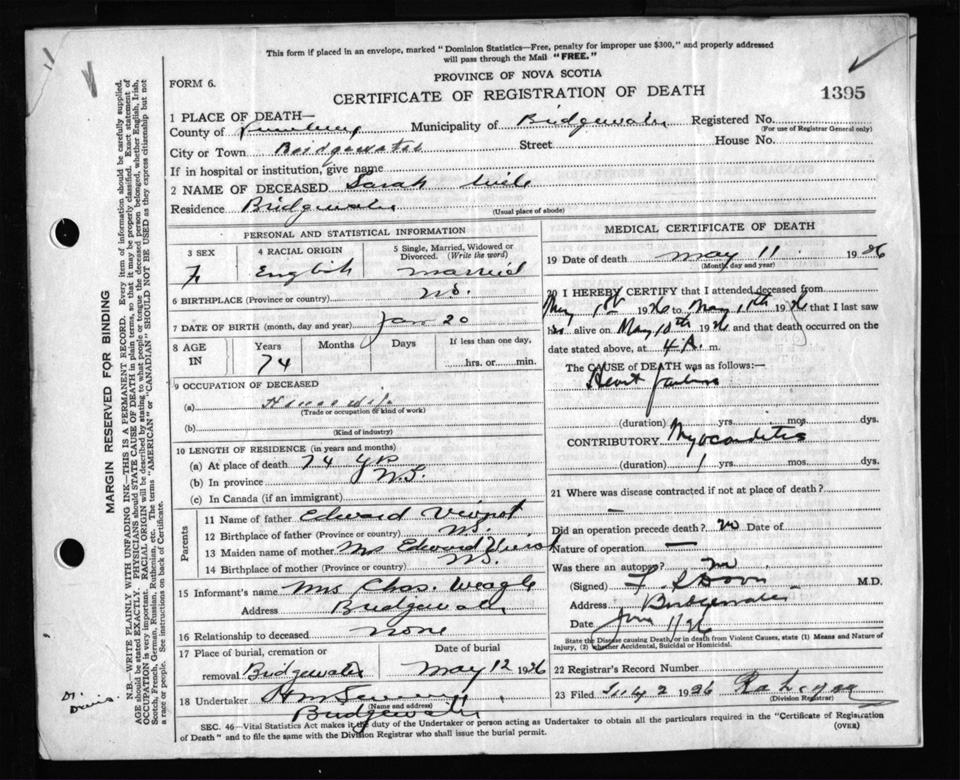 This form if placed in an envelope, marked "Dominion Statistics—Free, penalty for improper use $300," and properly addressed
will pass through the Mail "FREE."
FORM 6.
PROVINCE OF NOVA SCOTIA
CERTIFICATE OF REGISTRATION OF DEATH
1395
1 PLACE OF DEATH—
County of Lunenburg Municipality of Bridgewater Registered No.
(For use of Registrar General only)
City or Town Bridgewater Street House No.
If in hospital or institution, give name
2 NAME OF DECEASED Sarah Wile
Residence Bridgewater
(Usual place of abode)
PERSONAL AND STATISTICAL INFORMATION
3 SEX 4 RACIAL ORIGIN 5 Single, Married, Widowed or
Divorced. (Write the word)
F English married
6 BIRTHPLACE (Province or country) N.S.
7 DATE OF BIRTH (month, day and year) Jan 20
8 AGE IN Years Months Days If less than one day,
74 hrs. or min.
9 OCCUPATION OF DECEASED
(a) Housewife
(Trade or occupation or kind of work)
(b)
(Kind of industry)
10 LENGTH OF RESIDENCE (in years and months)
(a) At place of death 74 yr
(b) In province N.S.
(c) In Canada (if an immigrant)
Parents
11 Name of father Edward
12 Birthplace of father (Province or country) N.S.
13 Maiden name of mother Mrs Edward
14 Birthplace of mother (Province or country) N.S.
15 Informant's name Mrs Chas. Weagle
Address Bridgewater
16 Relationship to deceased none
17 Place of burial, cremation or Date of burial
removal Bridgewater May 12 1926
18 Undertaker
(Name and address)
Bridgewater
MEDICAL CERTIFICATE OF DEATH
19 Date of death May 11 1926
(Month, day and year)
20 I HEREBY CERTIFY that I attended deceased from
May 1926 to May 11th 1926 that I last saw
her alive on May 10th 1926 and that death occurred on the
date stated above, at 4 A. m.
The CAUSE OF DEATH was as follows:—
Heart failure
(duration) yrs. mos. dys.
CONTRIBUTORY. Myocarditis
(duration) 1 yrs. mos. dys.
21 Where was disease contracted if not at place of death?
—
Did an operation precede death? no Date of
Nature of operation —
Was there an autopsy? no
(Signed) M.D.
Address Bridgewater
Date
State the Disease causing Death, or in death from Violent Causes, state (1) Means and Nature of
Injury, (2) whether Accidental, Suicidal or Homicidal.
22 Registrar's Record Number
23 Filed 2 1926
(Division Registrar)
SEC. 46—Vital Statistics Act makes it the duty of the Undertaker or person acting as Undertaker to obtain all the particulars required in the "Certificate of Registration
of Death" and to file the same with the Division Registrar who shall issue the burial permit.
(OVER)
MARGIN RESERVED FOR BINDING
N.B.—WRITE PLAINLY WITH UNFADING INK—THIS IS A PERMANENT RECORD. Every item of information should be carefully supplied.
AGE should be stated EXACTLY. PHYSICIANS should STATE CAUSE OF DEATH in plain terms, so that it may be properly classified. Exact statement of
OCCUPATION is very important. RACIAL ORIGIN will be described by stating to what people or tongue the deceased person belonged, whether English, Irish,
Scotch, French, German, Russian, Ruthenian, etc. The terms "AMERICAN" or "CANADIAN" SHOULD NOT BE USED as they express citizenship but not
a race or people. See instructions on back of Certificate.
Dr. Davis